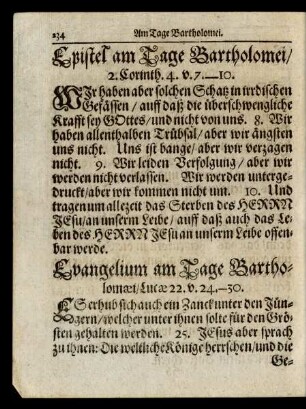 234 Am Tage Bartholomei.
Epistel am Tage Bartholomei/
2. Corinth. 4. v. 7.—10.
WIr haben aber solchen Schatz in irrdischen
Gefässen/ auff daß die überschwengliche
Krafft sey GOttes/ und nicht von uns. 8. Wir
haben allenthalben Trübsal/ aber wir ängsten
uns nicht. Uns ist bange/ aber wir verzagen
nicht. 9. Wir leiden Verfolgung/ aber wir
werden nicht verlassen. Wir werden unterge-
druckt/ aber wir kommen nicht um. 10. Und
tragen um allezeit das Sterben des HERRN
JEsu/ an unserm Leibe/ auff daß auch das Le-
ben des HERRN JEsu an unserm Leibe offen-
bar werde.
Evangelium am Tage Bartho-
lomæi/ Lucæ 22. v. 24.—30.
ES erhub sich auch ein Zanck unter den Jün-
gern/ welcher unter ihnen solte für den Grö-
sten gehalten werden. 25. JEsus aber sprach
zu ihnen: Die weltliche Könige herrschen/ und die
Ge-